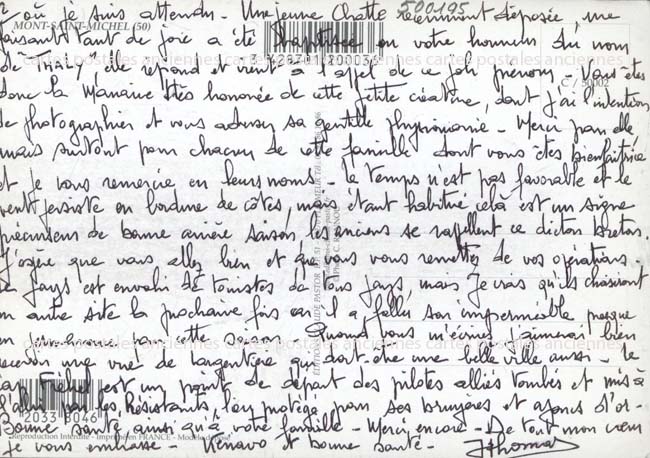 où je suis attendu - Une jeune Chatte récemment déposée, me
faisant tant de joie a été baptisée en votre honneur du nom
de THALY elle répond et vient à l'appel de ce joli prénom - Vous êtes
donc la Marraine très honorée de cette petite créature, dont j'ai l'intention
de photographier et vous adresser sa gentille physionomie - Merci pour elle
mais surtout pour chacun de cette famille dont vous êtes bienfaitrice
et je vous remercie en leurs noms - le temps n'est pas favorable et le
vent persiste en bordure de côtes, mais étant habitué celà est un signe
précurseur de bonne arrière saison, les anciens se rappellent ce dicton breton.
J'espère que vous allez bien et que vous vous remettez de vos opérations -
Le pays est envahi de touristes de tous pays, mais je crois qu'ils choisiront
un autre site la prochaine fois car il a fallu son imperméable presque
en permanence cette Saison - Quand vous m'écrirez j'aimerais bien
recevoir une vue de Largentière qui doit être une belle ville aussi - le
Cap Fréhel est un point de départ des pilotes alliés tombés et mis à
l'abri par les Résistants, l'on protège pour ses bruyères et ajoncs d'or -
Bonne santé ainsi qu'à votre famille - Merci encore - De tout mon cœur
je vous embrasse - Kénavo et bonne santé - JThomas
500195
MONT-SAINT-MICHEL (50)
C / 50002
cartes postales anciennes cartes postales anciennes cartes postales anciennes
cartes postales anciennes cartes postales anciennes cartes postales anciennes
2033 3046
Reproduction Interdite - Imprimé en FRANCE - Modèle déposé